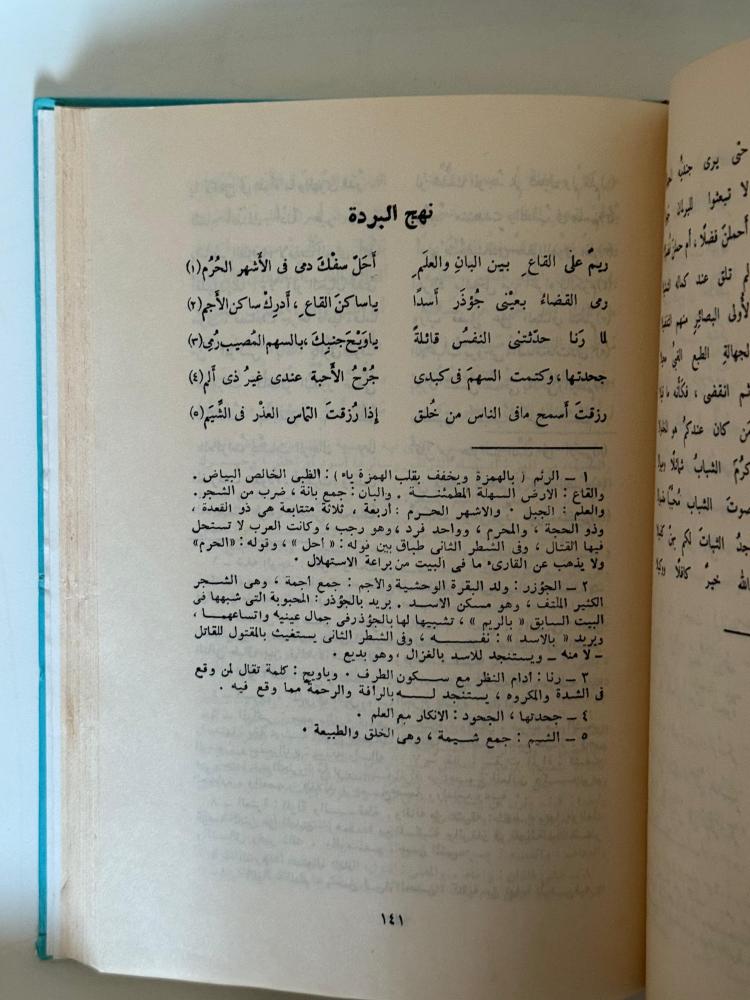 نهج البردة
ريمٌ علَى القاعِ بين البانِ والعلَمِ أَحَلَّ سفْكَ دمى فى الأَشهر الحُرُم (١)
رمى القضاءُ بعيْنى جُؤذَر أَسدًا ياساكنَ القاعِ ، أَدرِكْ ساكن الأَجم (٢)
لما رَنا حدّثتنى النفسُ قائلةً ياوَيْحَ جنبِكَ ، بالسهم المُصيب رُمِى (٣)
جحدتها ، وكتمت السهمَ فى كبدى جُرْحُ الأَحبة عندى غيرُ ذى أَلم (٤)
رزقتَ أَسمح مافى الناس من خُلق إذا رُزقتَ التماس العذْر فى الشِّيَم (٥)
١ ــ الرئم ( بالهمزة ويخفف بقلب الهمزة ياء ) : الظبى الخالص البياض .
والقاع : الارض السهلة المطمئنة . والبان : جمع بانة ، ضرب من الشجر .
والعلم : الجبل . والاشهر الحرم : أربعة ، ثلاثة متتابعة هى ذو القعدة ،
وذو الحجة ، والمحرم ، وواحد فرد ، وهو رجب ، وكانت العرب لا تستحل
فيها القتال ، وفى الشطر الثانى طباق بين قوله : « أحل » ، وقوله : «الحرم»
ولا يذهب عن القارىء ما فى البيت من براعة الاستهلال .
٢ ــ الجؤزر : ولد البقرة الوحشية والأجم : جمع أجمة ، وهى الشجر
الكثير الملتف ، وهو مسكن الاسد . يريد بالجؤذر : المحبوبة التى شبهها فى
البيت السابق « بالريم » ، تشبيها لها بالجؤذرفى جمال عينيه واتساعهما ،
ويريد « بالاسد » : نفسه ، وفى الشطر الثانى يستغيث بالمقتول للقاتل
ــ لا منه ــ ويستنجد للاسد بالغزال ، وهو بديع .
٣ ــ رنا : أدام النظر مع سكون الطرف . وياويح : كلمة تقال لمن وقع
فى الشدة والمكروه ، يستنجد له بالرأفة والرحمة مما وقع فيه .
٤ ــ جحدتها ، الجحود : الانكار مع العلم .
٥ ــ الشيم : جمع شيمة ، وهى الخلق والطبيعة .
١٤١
حتى يرى جنديُّه
لا تبعثوا للبرلمان
لم تلق عند كماله
الأُولى البصائر منهم
لجهالةِ الطبع الغبىُّ
ثم انقضى ، فكأَنه ما
مَن كان عندكمُ هو
كرمَ الشباب شمائلًا
صوت الشباب مُحبَّبا
الله خيرُ كافلًا